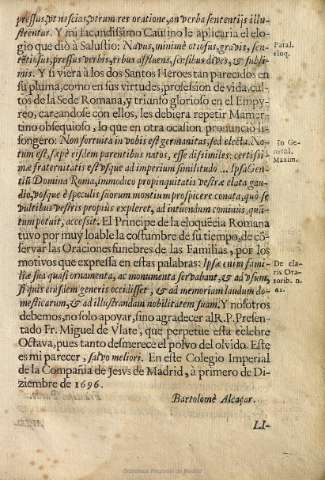 pressus, vt nescias, vtrum res oratione, an verba sententijs illu-
strentur. Y mi facundissimo Caussino le aplicaria el elo-
gio que diò à Salustio: Nauus, minimè otiosus, gravis, sen-
tentiosus, pressus verbis, rebus affluens, sensibus dives, & subli-
mis. Y si viera à los dos Santos Heroes tan parecidos en
su pluma, como en sus virtudes, profession de vida, cul-
tos de la Sede Romana, y triunfo glorioso en el Empy-
reo, careandose con ellos, les debiera repetir Mamer-
tino obsequioso, lo que en otra ocasion pronunciò li-
songero: Non fortuita in vobis est germanitas, sed electa. No-
tum est, sæpè eisdem parentibus natos, esse disimiles: certissi-
mæ fraternitatis est vsque ad imperium similitudo ... Ipsa Gen-
tiũ Domina Roma, immodico propinquitatis vestræ elata gau-
dio, vosque è speculis suorum montium prospicere conata, quò se
vultibus vestris propiùs expleret, ad intuendum cominùs, quã-
tum potuit, accessit. El Principe de la eloquẽcia Romana
tuvo por muy loable la costumbre de su tiempo, de cõ-
servar las Oraciones funebres de las Familias, por los
motivos que expressa en estas palabras: Ipsæ enim fami-
liæ sua quasi ornamenta, ac monumenta servabant, & ad vsum,
si quis eiusdem generis occidisset, & ad memoriam laudum do-
mesticarum, & ad illustrandam nobilitatem suam. Y nosotros
debemos, no solo apoyar, sino agradecer al R.P. Presen-
tado Fr. Miguel de Vlate, que perpetue esta cèlebre
Octava, pues tanto desmerece el polvo del olvido. Este
es mi parecer, salvo meliori. En este Colegio Imperial
de la Compañia de Jesvs de Madrid, à primero de Di-
ziembre de 1696.
Bartolomè Alcaçar.
LI-
Paral.
eloq.
In Ge-
netal.
Maxim.
De cla-
ris Ora-
torib. n.